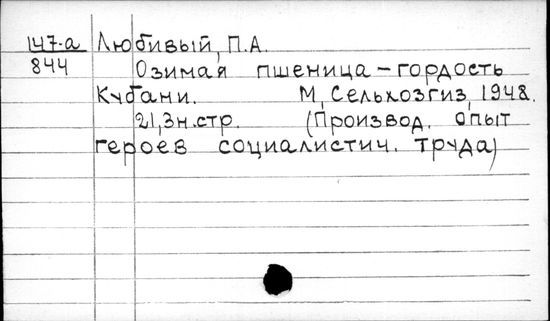 147-а Любивый, П.А.
844 Озимая пшеница – гордость
Кубани. М, Сельхозгиз, 1948.
21,3н.стр. (Производ. опыт
героев социалистич. труда)